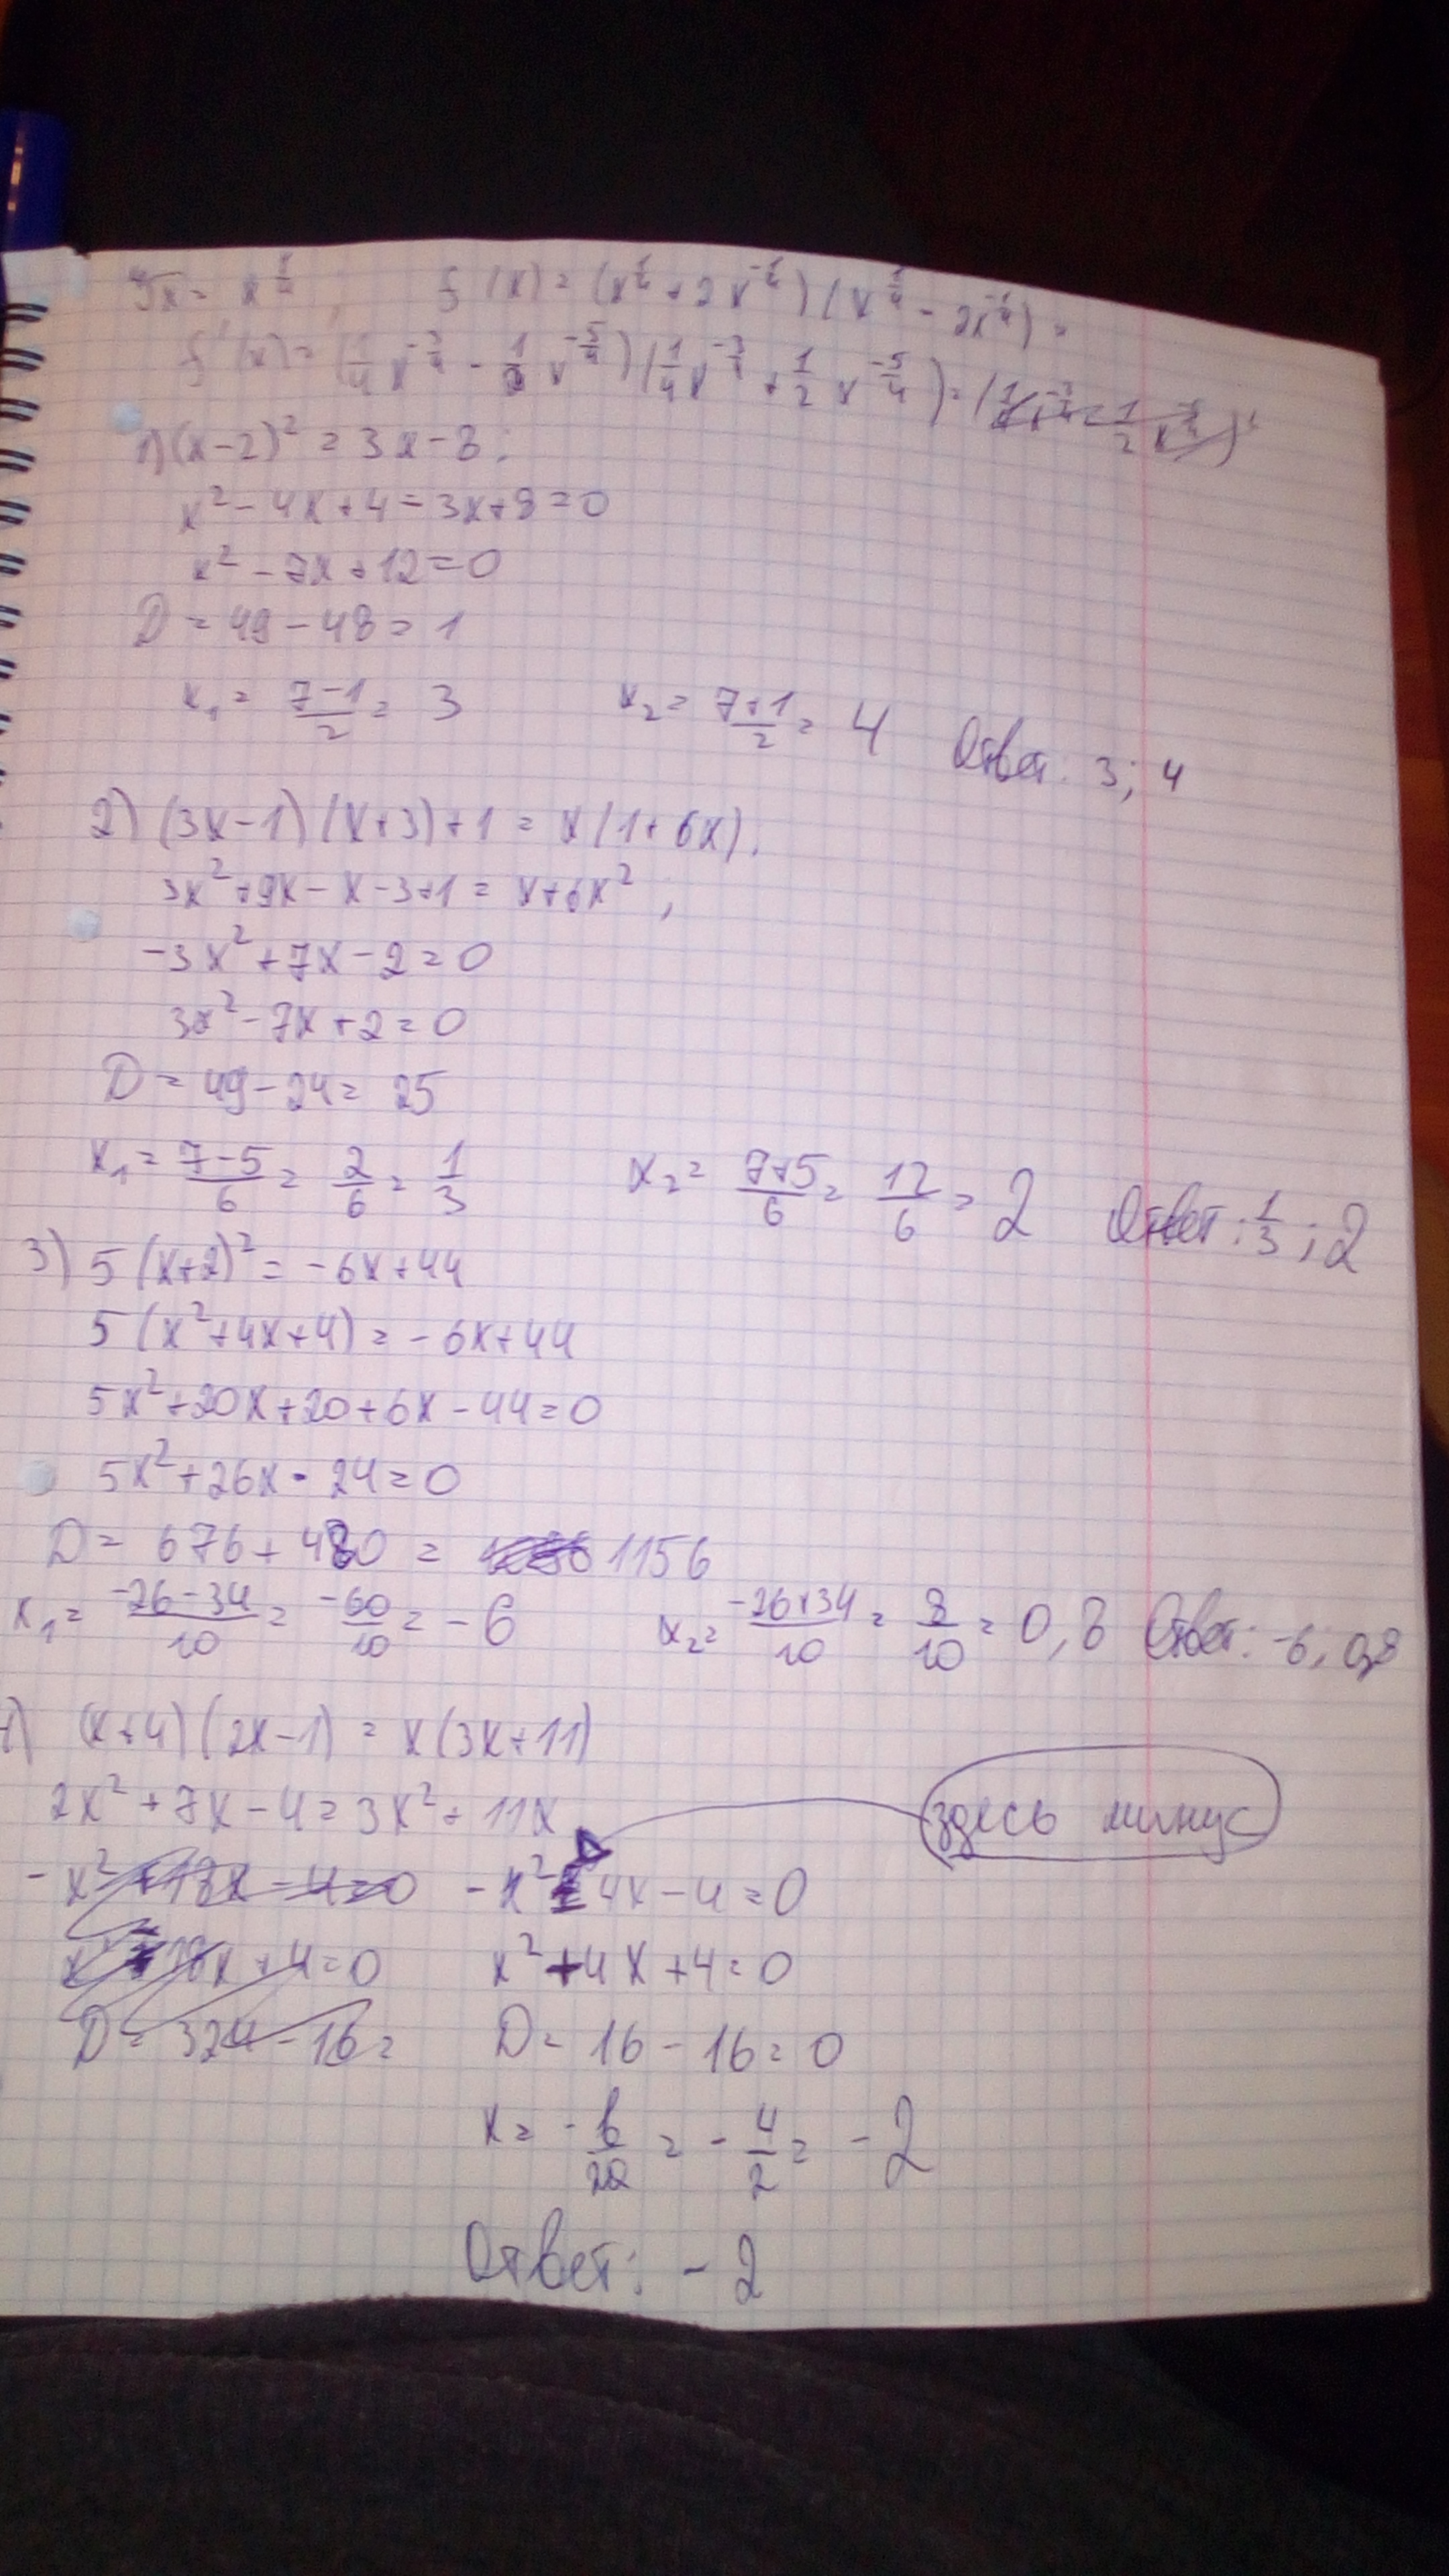 ⁴√x = x^(1/4), f(x) = (x^(1/4) + 2x^(-1/4))(x^(1/4) - 2x^(-1/4)) =
f'(x) = (1/4 x^(-3/4) - 1/2 x^(-5/4))(1/4 x^(-3/4) + 1/2 x^(-5/4)) =
1) (x-2)² = 3x-8;
x² - 4x + 4 - 3x + 8 = 0
x² - 7x + 12 = 0
D = 49 - 48 = 1
x₁ = (7-1)/2 = 3 x₂ = (7+1)/2 = 4 Ответ: 3; 4
2) (3x-1)(x+3)+1 = x(1+6x).
3x² + 9x - x - 3 + 1 = x + 6x²;
-3x² + 7x - 2 = 0
3x² - 7x + 2 = 0
D = 49 - 24 = 25
x₁ = (7-5)/6 = 2/6 = 1/3 x₂ = (7+5)/6 = 12/6 = 2 Ответ: 1/3; 2
3) 5(x+2)² = -6x+44
5(x²+4x+4) = -6x+44
5x²+20x+20+6x-44=0
5x²+26x-24=0
D = 676 + 480 = 1156
x₁ = (-26-34)/10 = -60/10 = -6 x₂ = (-26+34)/10 = 8/10 = 0,8 Ответ: -6; 0,8
(x+4)(2x-1) = x(3x+11)
2x² + 7x - 4 = 3x² + 11x
здесь минус
-x² + 18x - 4 = 0 -x² - 4x - 4 = 0
x² - 18x + 4 = 0 x² + 4x + 4 = 0
D = 324 - 16 = D = 16 - 16 = 0
x = -b/2a = -4/2 = -2
Ответ: -2